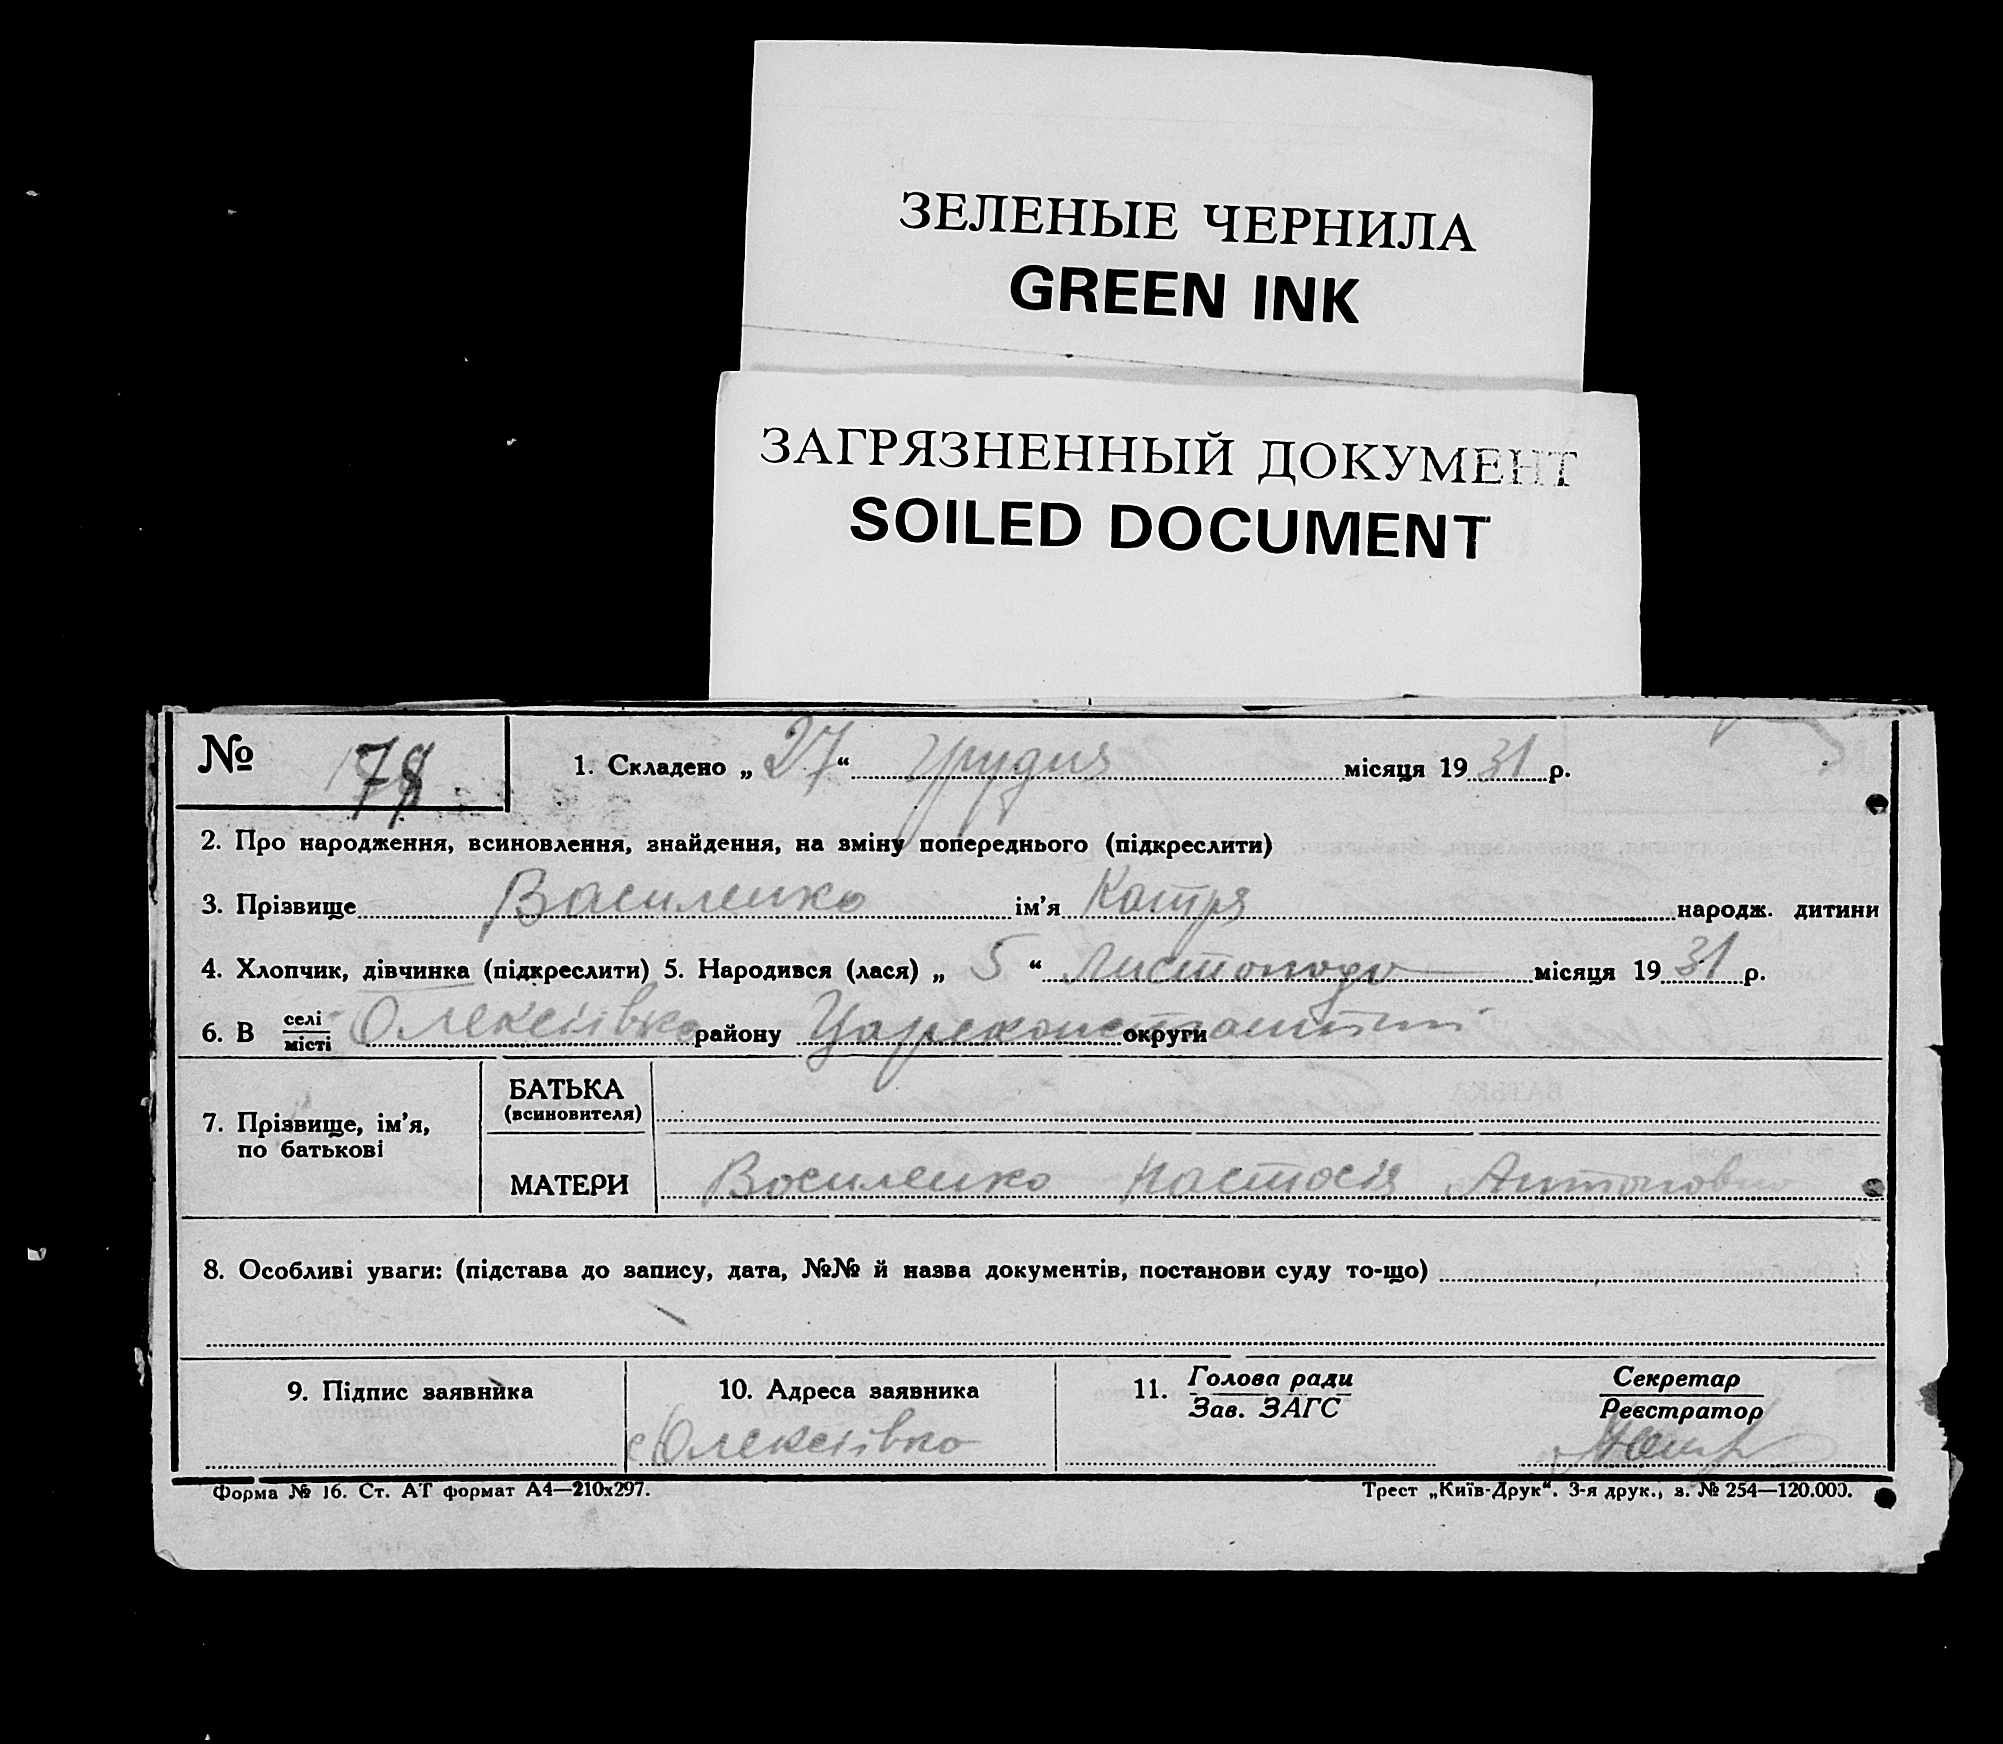 ЗЕЛЕНЫЕ ЧЕРНИЛА
GREEN INK
ЗАГРЯЗНЕННЫЙ ДОКУМЕНТ
SOILED DOCUMENT
№ 78 1. Складено „ 27 “ грудня місяця 19 31 р.
2. Про народження, всиновлення, знайдення, на зміну попереднього (підкреслити)
3. Прізвище Василенко ім’я Катря народж. дитини
4. Хлопчик, дівчинка (підкреслити) 5. Народився (лася) „ 5 “ Листопада місяця 19 31 р.
6. В селі
місті Олексіївка району округи
7. Прізвище, ім’я,
по батькові
БАТЬКА
(всиновителя)
МАТЕРИ Василенко Настасія Антоновна
8. Особливі уваги: (підстава до запису, дата, №№ й назва документів, постанови суду то-що)
9. Підпис заявника 10. Адреса заявника 11. Голова ради Секретар
Зав. ЗАГС Реєстратор
с Олексіївка
Форма № 16. Ст. АТ формат А4—210х297. Трест „Київ-Друк“. 3-я друк., з. № 254—120.000.